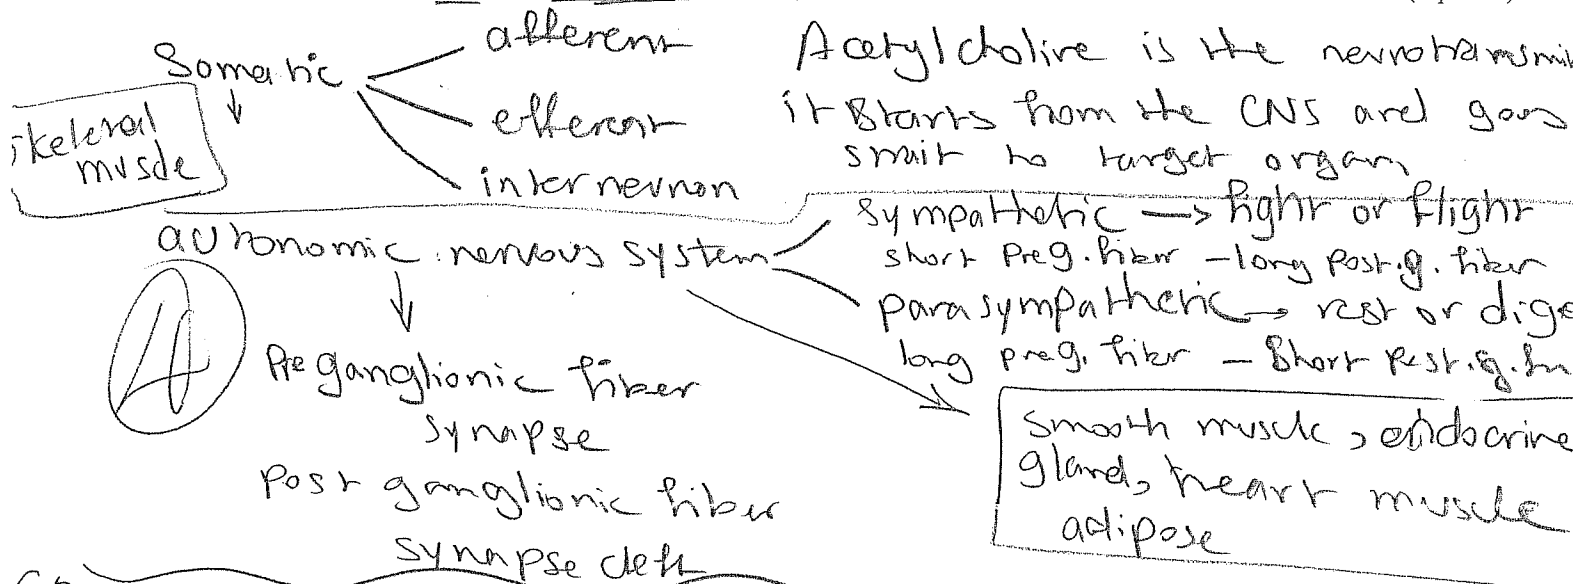 Somatic
afferent
efferent
inter neuron
skeletal
muscle
Acetylcholine is the neurotransmi
it starts from the CNS and goes
to target organ
autonomic nervous system
sympathetic → fight or flight
short Preg. fiber - long Post.g. fiber
parasympathetic → rest or dige
long preg. fiber - short Post.g.
Pre ganglionic fiber
synapse
Post ganglionic fiber
synapse cleft
smooth muscle, endocrine
gland, heart muscle
adipose